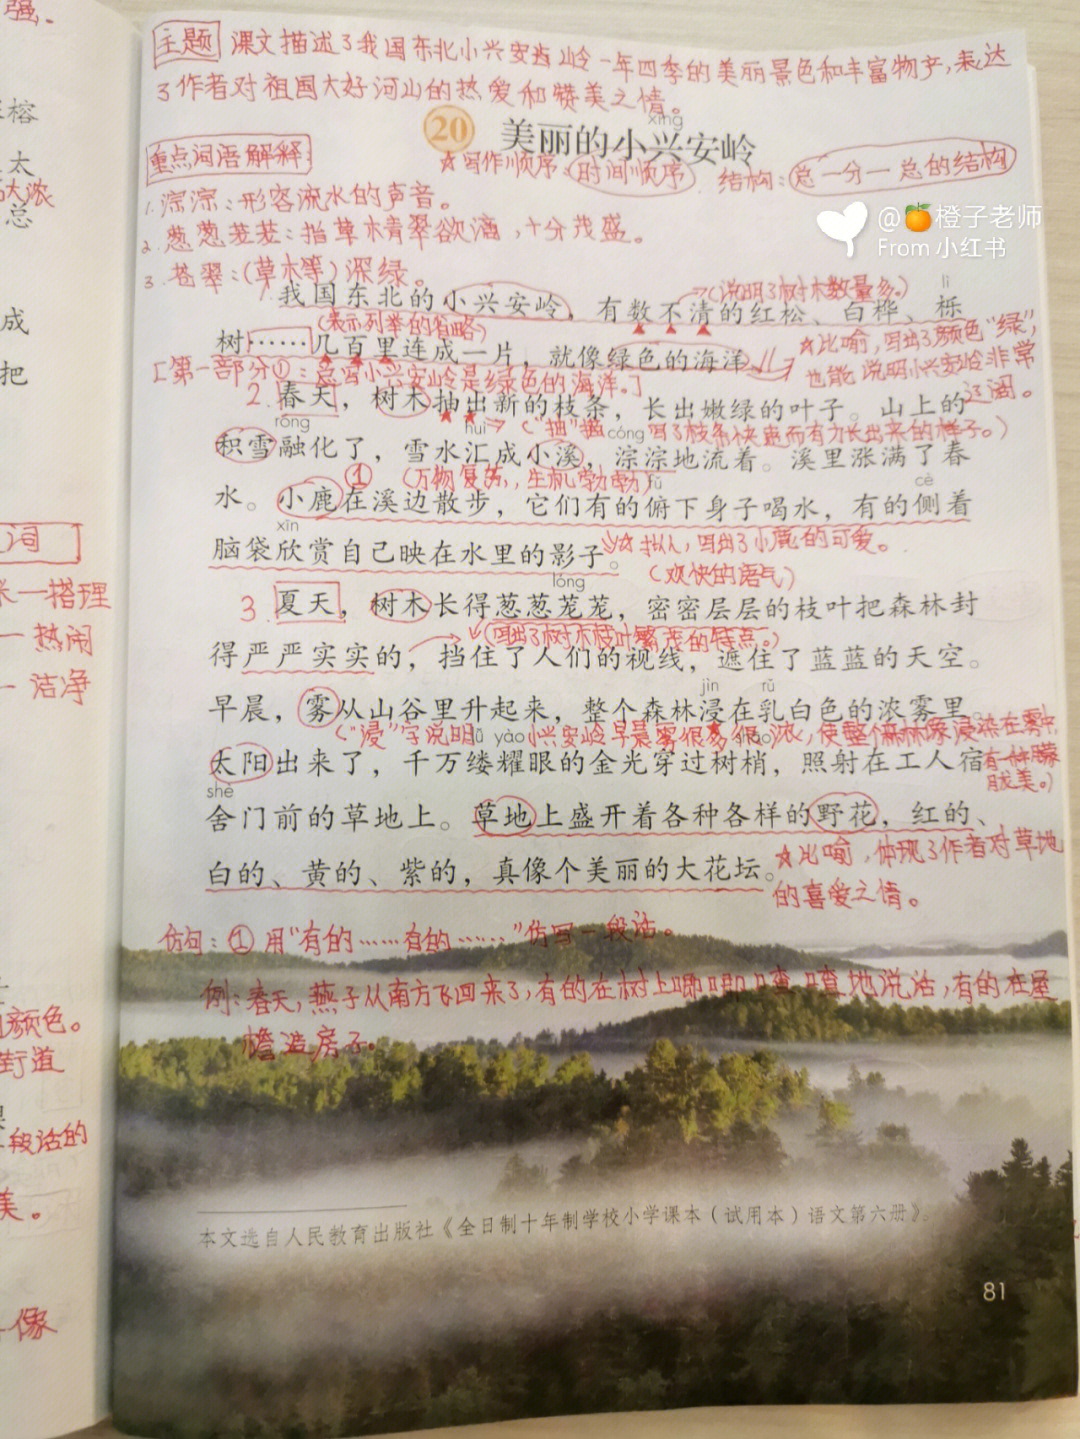 强.
主题 课文描述了我国东北小兴安岭一年四季的美丽景色和丰富物产,表达
了作者对祖国大好河山的热爱和赞美之情。
xīng
20 美丽的小兴安岭
☆写作顺序:时间顺序 结构:总一分一总的结构
重点词语解释:
1.淙淙:形容流水的声音。
2.葱葱茏茏:指草木青翠欲滴,十分茂盛。
3.苍翠:(草木等)深绿。
@🍊橙子老师
From 小红书
(说明了树木数量多。)
lì
1.我国东北的小兴安岭,有数不清的红松、白桦、栎
(表示列举的省略)
树……几百里连成一片,就像绿色的海洋。
☆比喻,写出了颜色“绿”,
也能说明小兴安岭非常
辽阔。
[第一部分①:总写小兴安岭是绿色的海洋。]
2.春天,树木抽出新的枝条,长出嫩绿的叶子。山上的
róng huì cóng
(“抽”描写了枝条快速而有力长出来的样子。)
积雪融化了,雪水汇成小溪,淙淙地流着。溪里涨满了春
① (万物复苏,生机勃勃) fǔ cè
水。小鹿在溪边散步,它们有的俯下身子喝水,有的侧着
xīn
脑袋欣赏自己映在水里的影子。
☆拟人,写出了小鹿的可爱。
(欢快的语气)
lóng
3 夏天,树木长得葱葱茏茏,密密层层的枝叶把森林封
(写出了树木枝叶繁茂的特点。)
得严严实实的,挡住了人们的视线,遮住了蓝蓝的天空。
jìn rǔ
早晨,雾从山谷里升起来,整个森林浸在乳白色的浓雾里。
(“浸”字说明小兴安岭早晨雾很多很浓,使整个森林像浸在雾中,
有一种朦
胧美。)
yào
太阳出来了,千万缕耀眼的金光穿过树梢,照射在工人宿
shè
舍门前的草地上。草地上盛开着各种各样的野花,红的、
白的、黄的、紫的,真像个美丽的大花坛。
☆比喻,体现了作者对草地
的喜爱之情。
仿句:①用“有的……有的……”仿写一段话。
例:春天,燕子从南方飞回来了,有的在树上唧唧喳喳地说话,有的在屋
檐造房子。
本文选自人民教育出版社《全日制十年制学校小学课本(试用本)语文第六册》。
81
榕
太
大浓
总
成
把
词
一搭理
一热闹
一洁净
颜色。
街道
段话的
美。
像